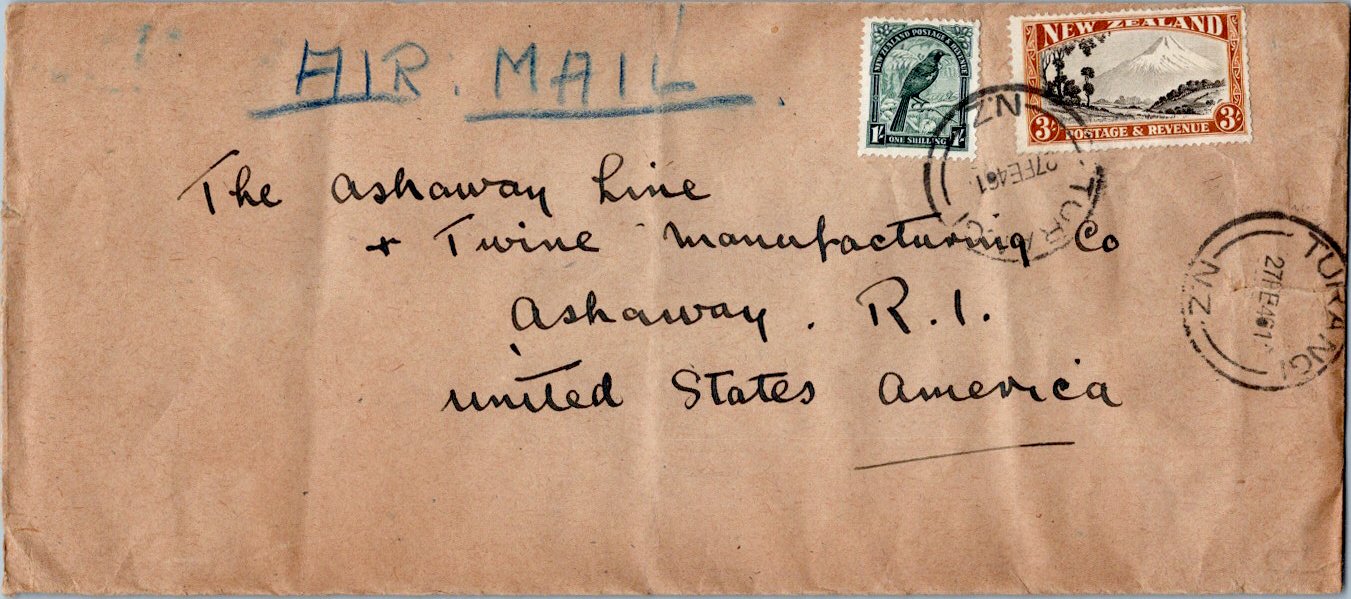 AIR. MAIL.
NEW ZEALAND POSTAGE & REVENUE
1/- ONE SHILLING 1/-
NEW ZEALAND
3/- POSTAGE & REVENUE 3/-
N.Z.
27FE461
TURANGI
The Ashaway Line
+ Twine Manufacturing Co
Ashaway. R.I.
United States America
TURANGI
27FE461
N.Z.